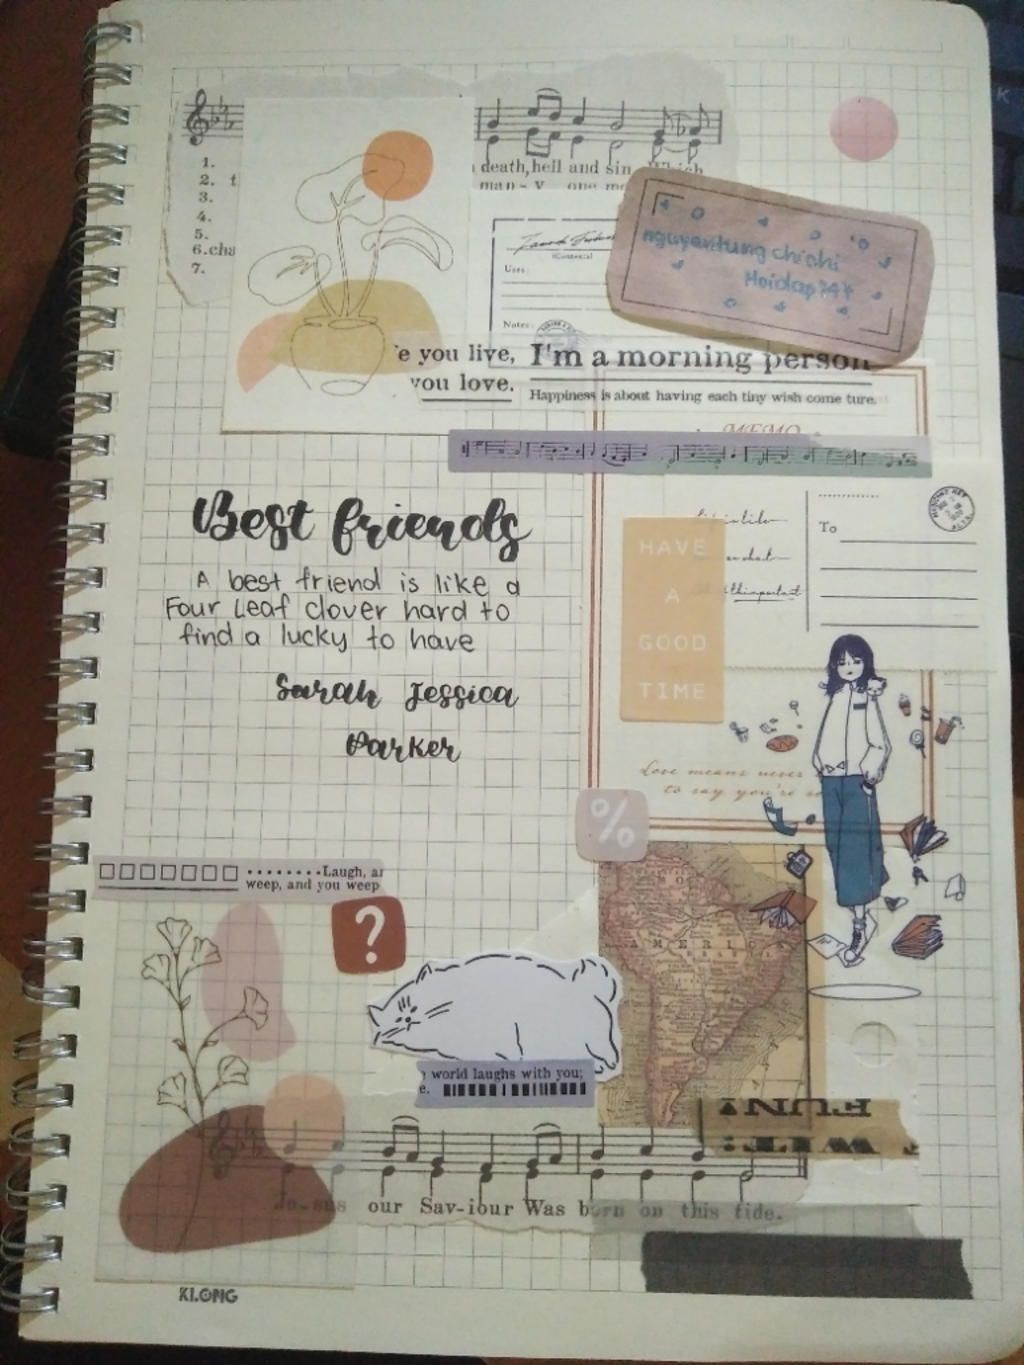 1.
2. t
3.
4.
5.
6.cha
7.
death, hell and sin Which
man - y one
Uses:
Notes:
nguyentung chichi
Hoidap247
e you live,
you love.
I'm a morning person
Happiness is about having each tiny wish come ture.
MEMO
To
HAVE
A
GOOD
TIME
Best friends
A best friend is like a
Four Leaf clover hard to
find a lucky to have
Sarah Jessica
Parker
Love means never
to say you're so
%
Laugh, an
weep, and you weep
?
AMERICA
world laughs with you;
e.
FUN
WIT
our Sav-iour Was born on this tide.
KLONG